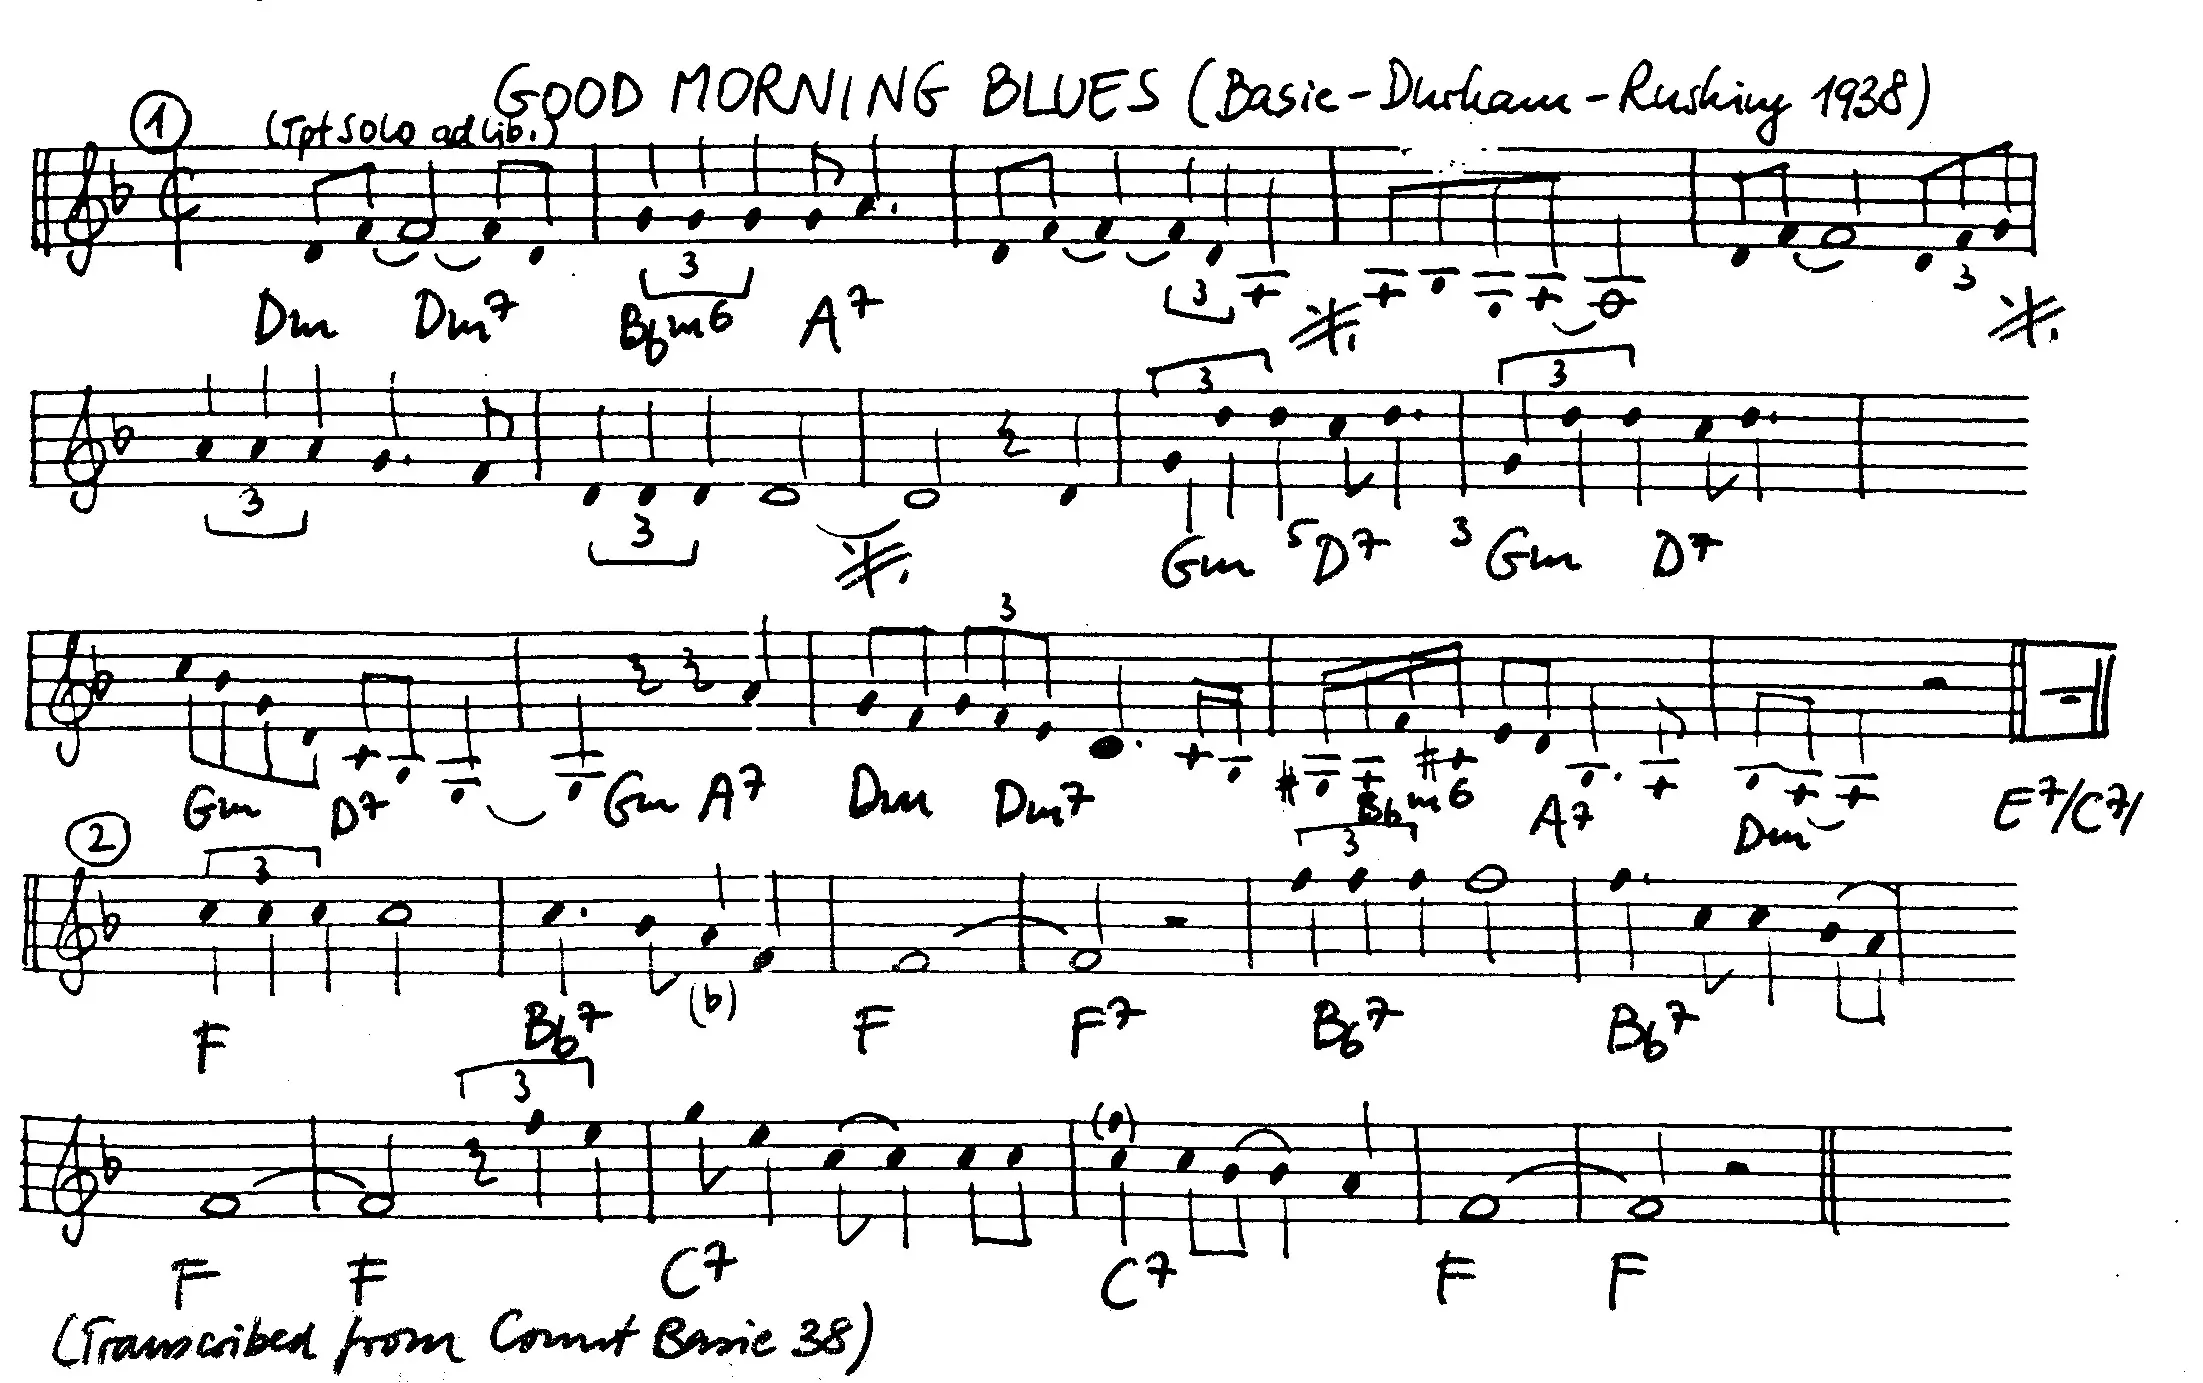 GOOD MORNING BLUES (Basie-Durham-Rushing 1938)
1 (Tpt SOLO ad lib.)
3 3 3
Dm Dm7 Bbm6 A7
3 3
3 3
Gm 5 D7 3 Gm D7
3
Gm D7 Gm A7 Dm Dm7 Bbm6 A7 Dm E7/C7/
2 3 3
(b)
F Bb7 F F7 Bb7 Bb7
3
F F C7 C7 F F
(Transcribed from Count Basie 38)